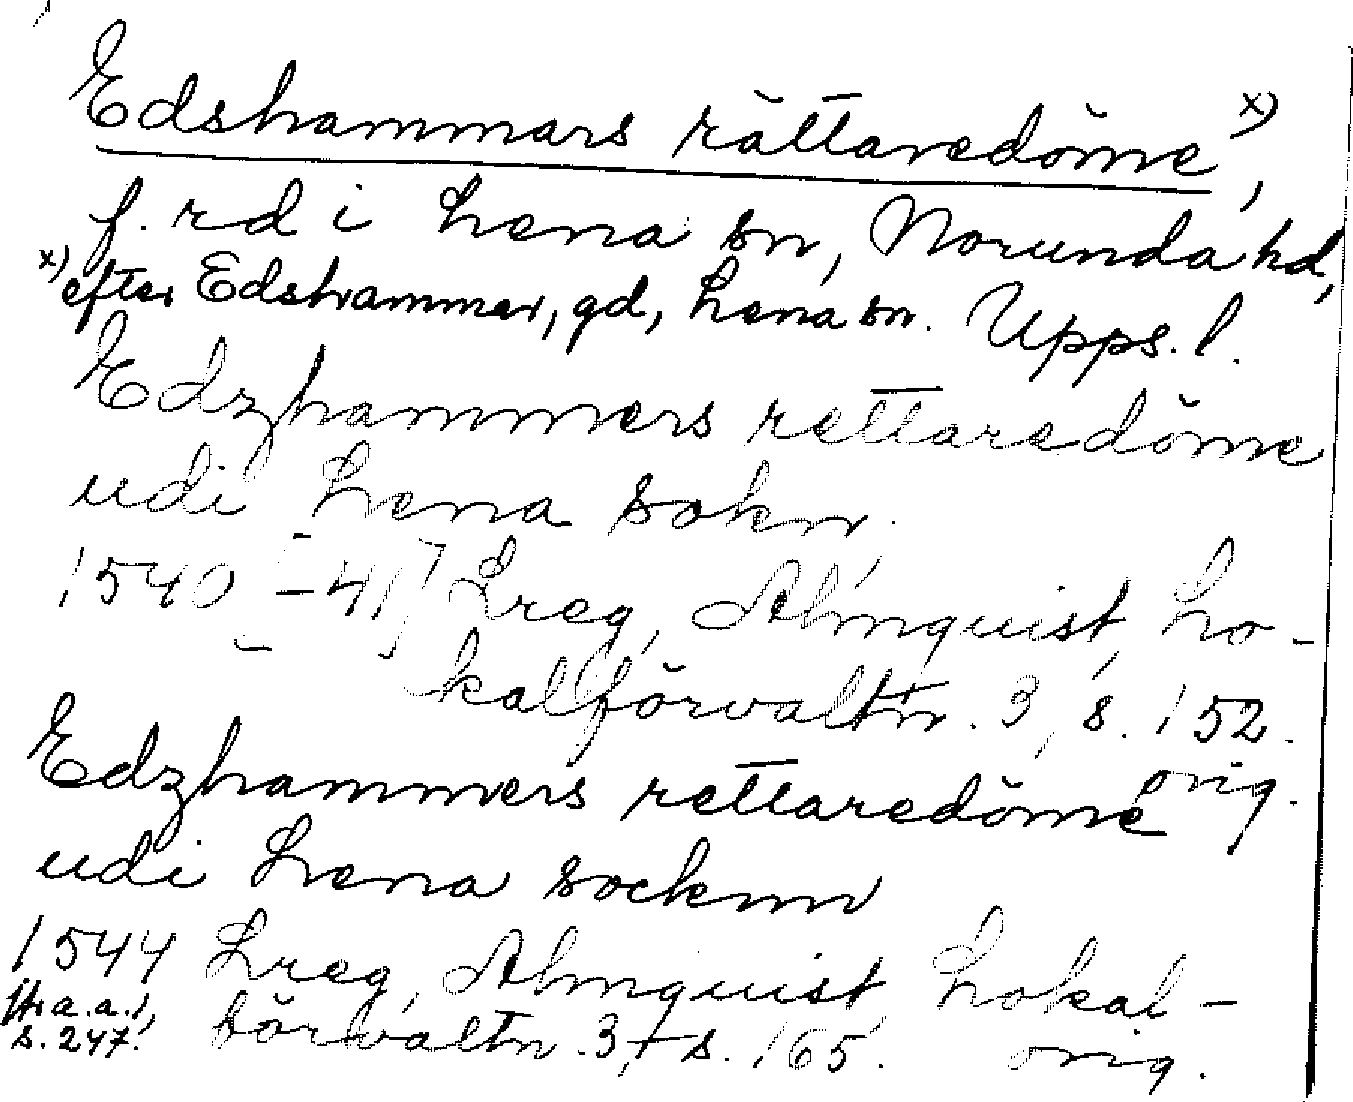 Edshammars rättaredöme, x)
f. rd i Lena sn, Norunda hd,
x) efter Edshammar, gd, Lena sn. Upps. l.
Edzhammers rettaredöme
udi Lena sokn.
1540 [-41] Lreg, Almquist, Lo-
kalförvaltn. 3, s. 152.
orig.
Edzhammers rettaredöme
udi Lena socknn
1544 Lreg, Almquist, Lokal-
förvaltn. 3, s. 165. orig.
a.a.,
s. 247.